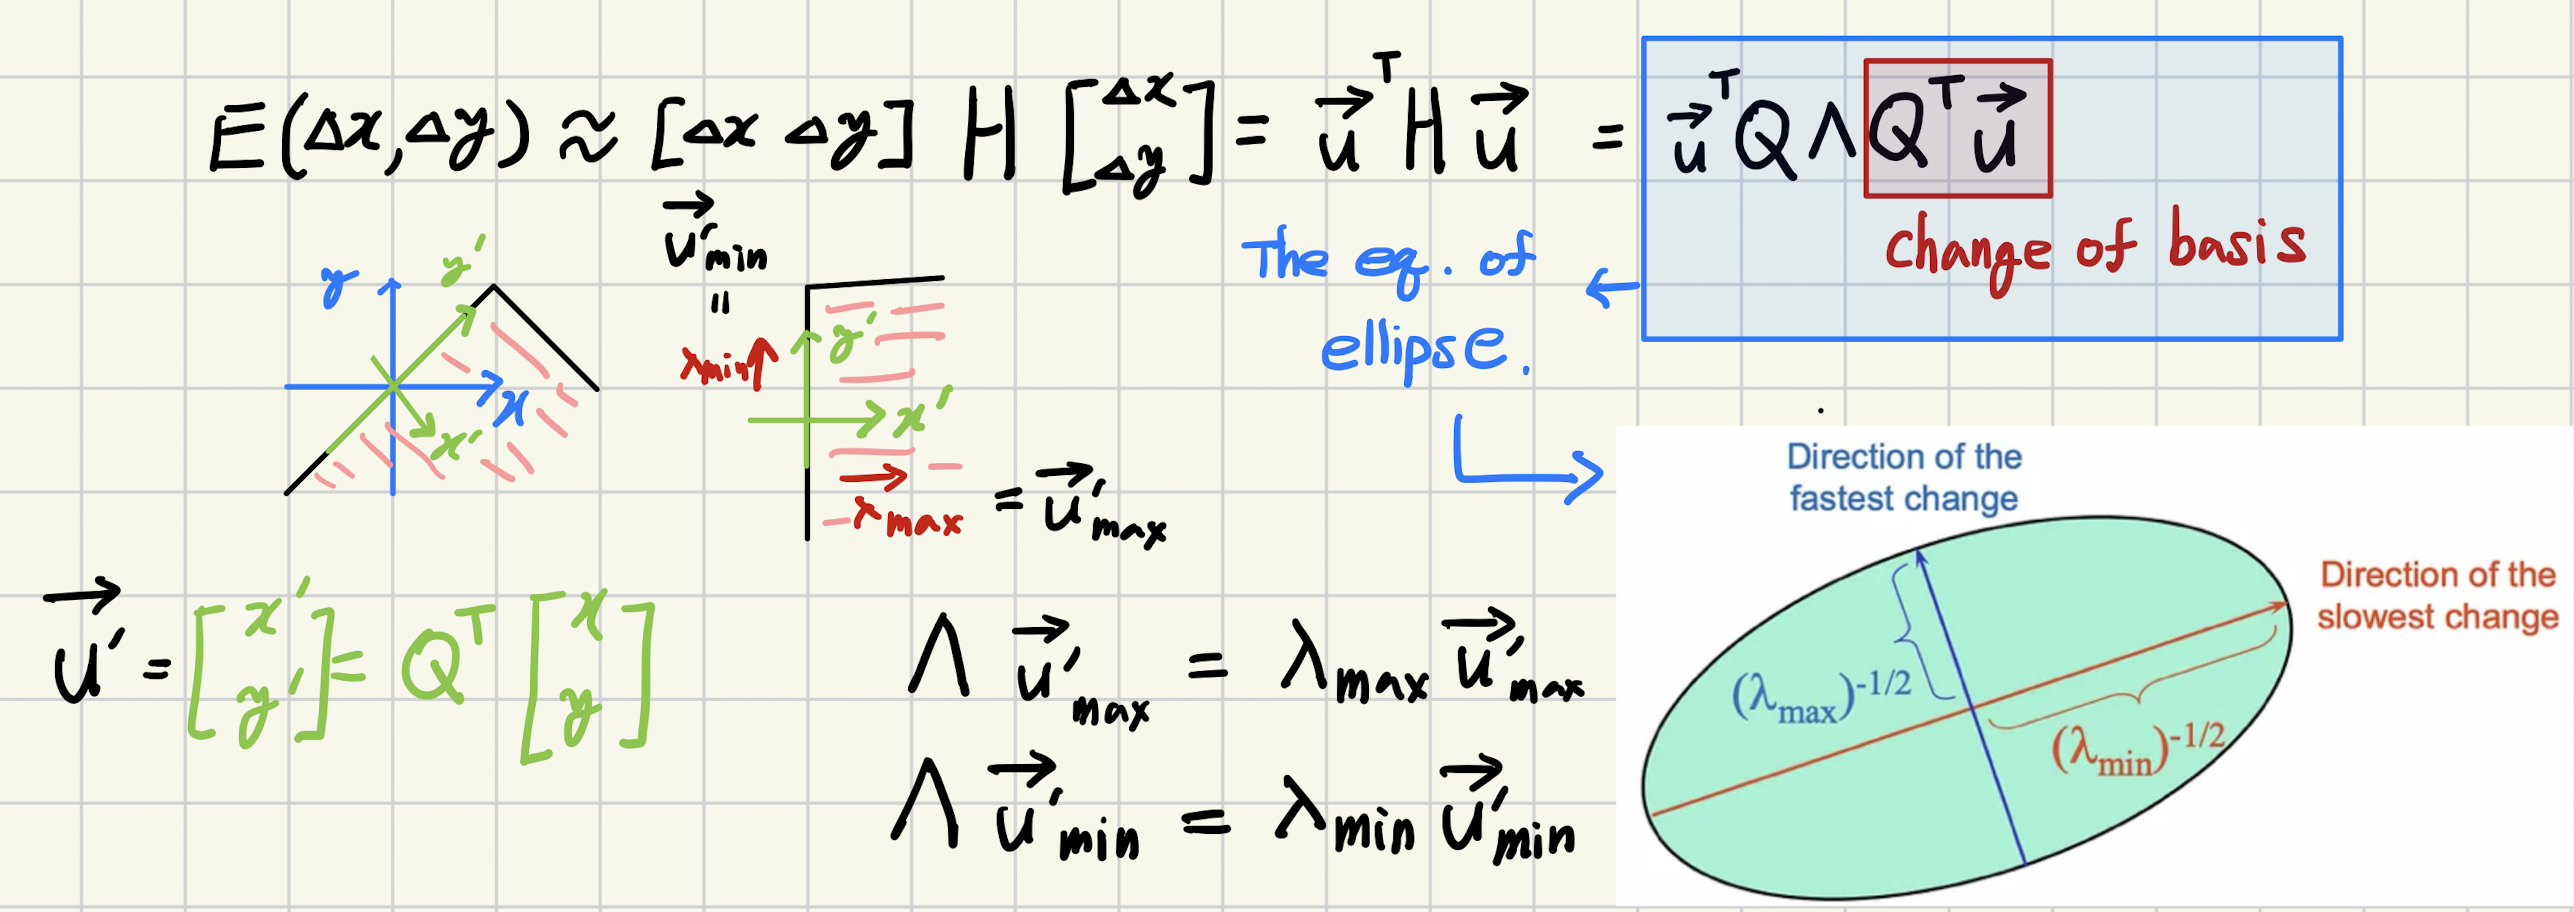 E(Δx,Δy) ≈ [Δx Δy] H [Δx Δy] = u⃗ᵀ H u⃗ = u⃗ᵀ Q Λ Qᵀ u⃗
change of basis
The eq. of
ellipse.
y
y'
x
x'
u⃗'min
=
xmin
y'
x'
xmax = u⃗'max
u⃗' = [x' y'] = Qᵀ [x y]
Λ u⃗'max = λmax u⃗'max
Λ u⃗'min = λmin u⃗'min
Direction of the
fastest change
Direction of the
slowest change
(λmax)-1/2
(λmin)-1/2